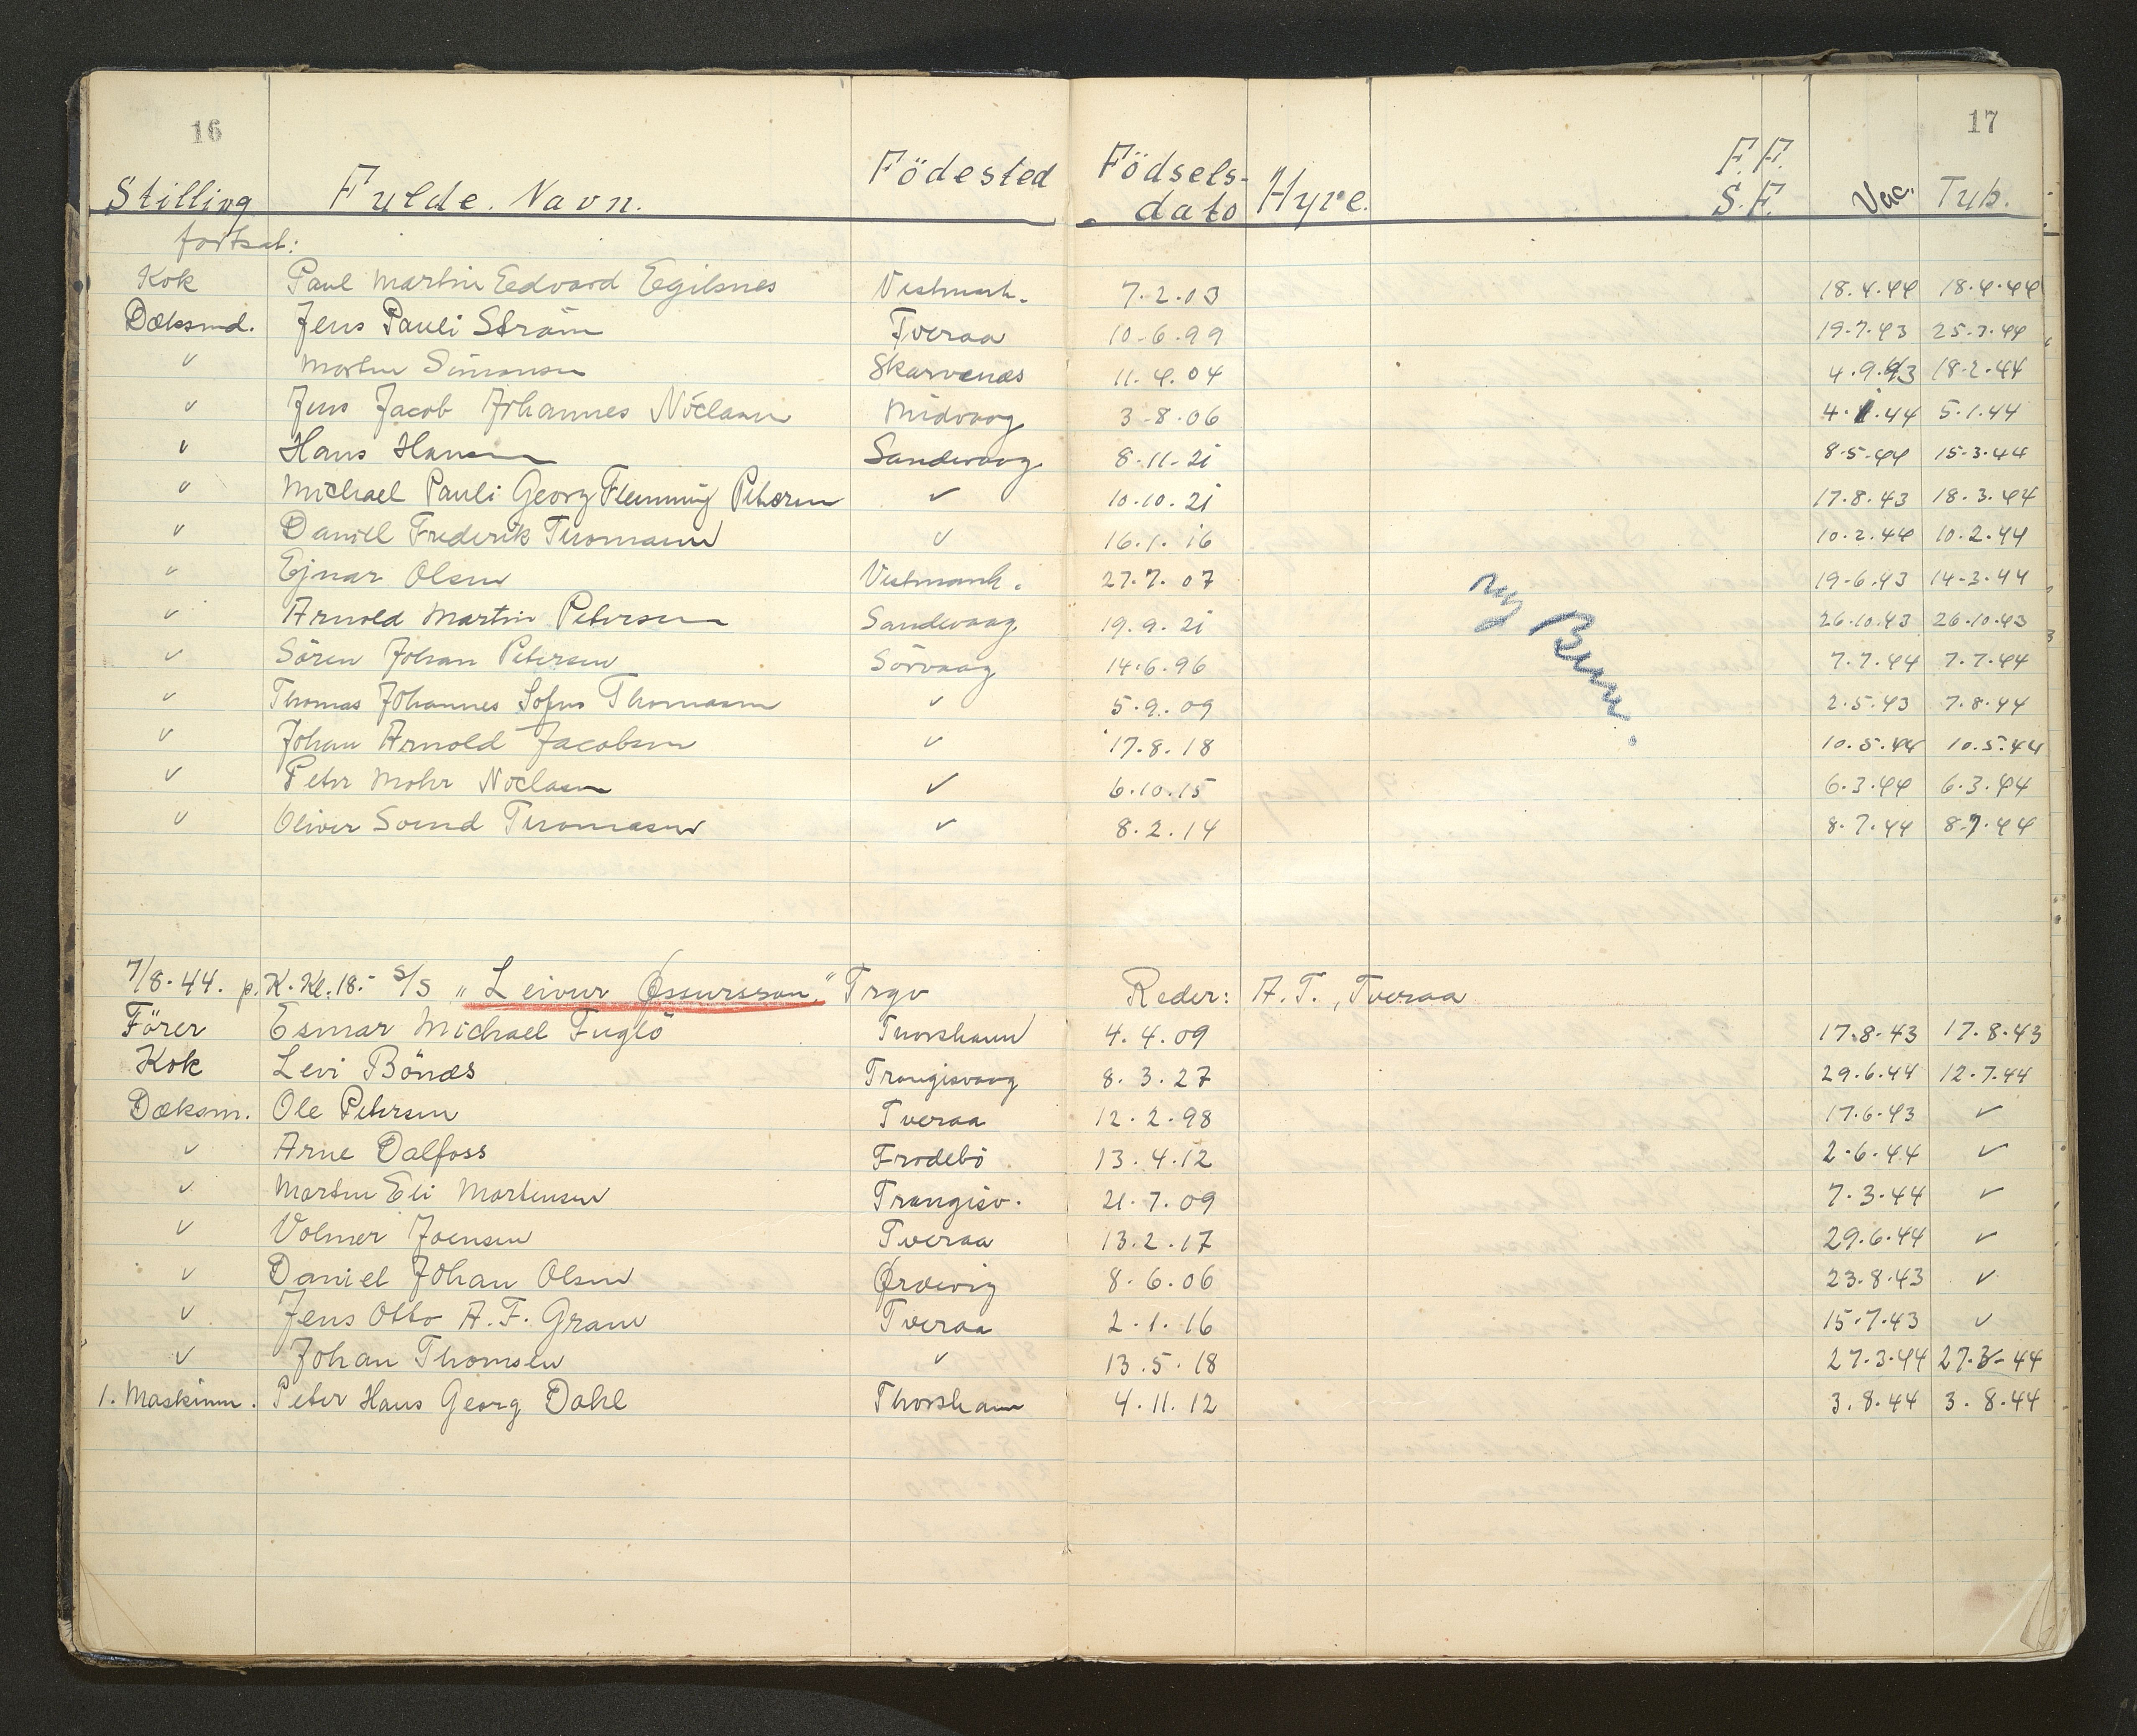 16
17
Stilling Fulde. Navn. Födested Födsels-dato Hyre. F.F. S.F. Vac. Tub.
fortsat:
Kok Paul Martin Edvard Egilsnes Vestmanh. 7.2.03 18.4.44 18.4.44
Dæksmd. Jens Pauli Ström Tveraa 10.6.99 19.7.43 25.7.44
v Martin Simonsen Skarvenæs 11.4.04 4.9.43 18.2.44
v Jens Jacob Johannes Niclasen Midvaag 3.8.06 4.1.44 5.1.44
v Hans Hansen Sandevaag 8.11.21 8.5.44 15.3.44
v Michael Pauli Georg Flemming Petersen v 10.10.21 17.8.43 18.3.44
v Daniel Frederik Thomasen v 16.1.16 10.2.44 10.2.44
v Ejnar Olsen Vestmanh. 27.7.07 19.6.43 14.3.44
v Arnold Martin Petersen Sandevaag 19.9.21 26.10.43 26.10.43
v Sören Johan Petersen Sörvaag 14.6.96 7.7.44 7.7.44
v Thomas Johannes Sofus Thomasen v 5.9.09 2.5.43 7.8.44
v Johan Arnold Jacobsen v 17.8.18 10.5.44 10.5.44
v Peter Mohr Niclasen v 6.10.15 6.3.44 6.3.44
v Oliver Soend Thomasen v 8.2.14 8.7.44 8.7.44
ny
7/8.44. p. K. Kl. 18.- S/S "Leivur Øssursson," Trgv Reder: A.T., Tveraa
Förer Esmar Michael Fuglö Thorshavn 4.4.09 17.8.43 17.8.43
Kok Levi Bönæs Trangisvaag 8.3.27 29.6.44 12.7.44
Dæksm. Ole Petersen Tveraa 12.2.98 17.6.43 v
v Arne Dalfoss Frodebö 13.4.12 2.6.44 v
v Martin Eli Mortensen Trangisv. 21.7.09 7.3.44 v
v Volmer Joensen Tveraa 13.2.17 29.6.44 v
v Daniel Johan Olsen Ørdevig 8.6.06 23.8.43 v
v Jens Otto A.F. Gram Tveraa 2.1.16 15.7.43 v
v Johan Thomsen v 13.5.18 27.3.44 27.3-44
1. Maskinm. Peter Hans Georg Dahl Thorshavn 4.11.12 3.8.44 3.8.44